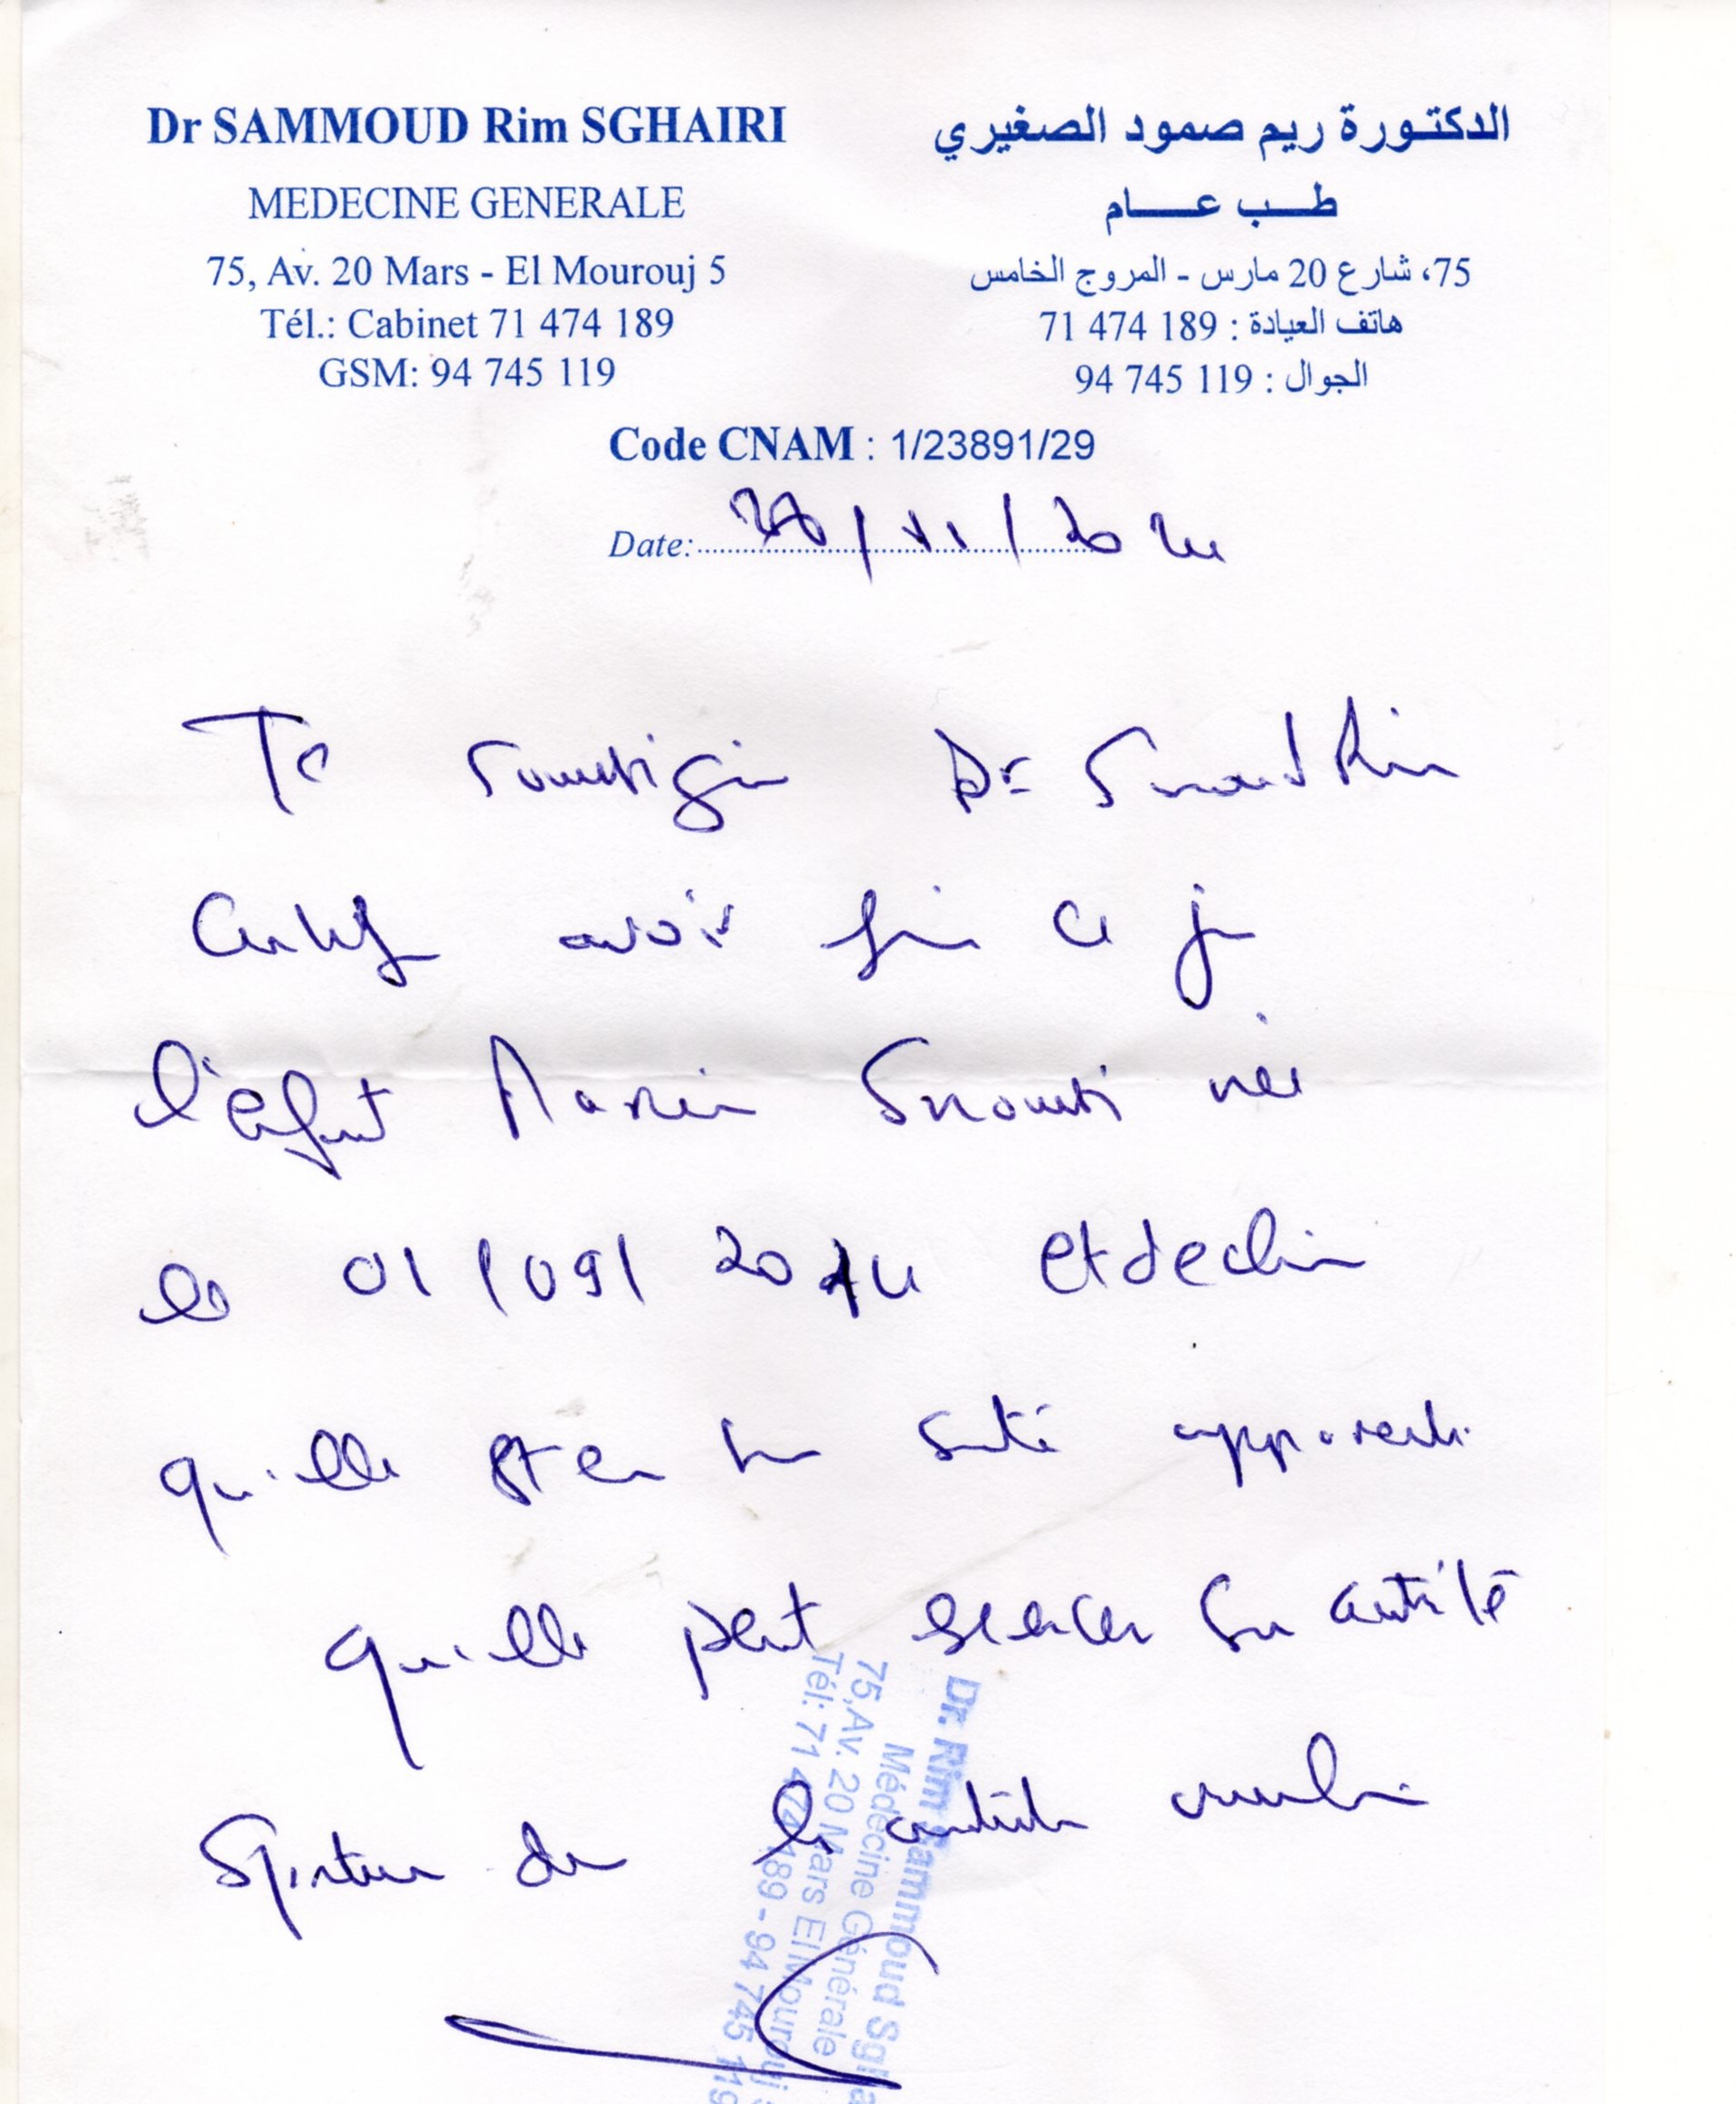 Dr SAMMOUD Rim SGHAIRI
MEDECINE GENERALE
75, Av. 20 Mars - El Mourouj 5
Tél.: Cabinet 71 474 189
GSM: 94 745 119
الدكتورة ريم صمود الصغيري
طب عام
75، شارع 20 مارس - المروج الخامس
هاتف العيادة : 189 474 71
الجوال : 119 745 94
Code CNAM : 1/23891/29
Date:
Je soussigné Dr Rim
Certifie avoir ce jr
l'enfant née
le 01/09/2014 et
qu'elle est en santé apparente
qu'elle peut exercer activité
Sportive
Dr. Rim Sammoud Sgha
Médecine Générale
75,Av. 20 Mars El Mourouj 5
Tél: 71 474 189 - 94 745 119